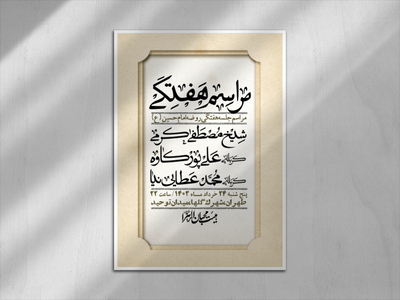 مراسم هفتگی
مراسم جلسه هفتگی روضه امام حسین (ع)
شیخ مصطفی کرمی
کربلایی علی پورکاوه
کربلایی محمد عطایی نیا
پنج شنبه ۲۴ خرداد ماه ۱۴۰۳ / ساعت ۲۲
طهران، شهرک گلها، میدان توحید
هیئت محبان الزهرا